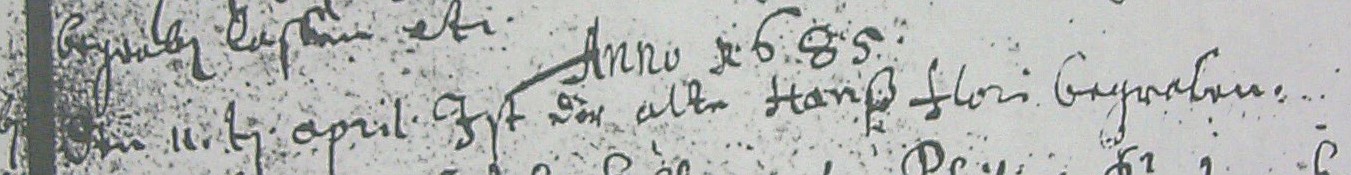 begraben lassen etc.
Anno 1685.
Den 11. tj april. Ist der alte Hanß Flori begraben.